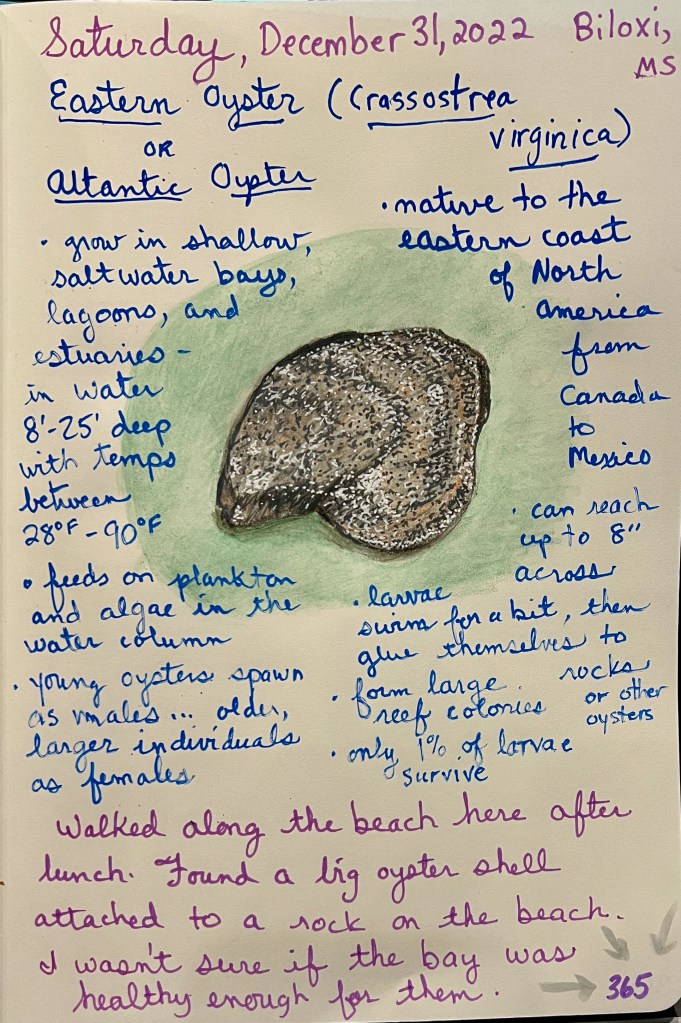 Saturday, December 31, 2022 Biloxi,
MS
Eastern Oyster (Crassostrea
virginica)
OR
Altantic Oyster
• grow in shallow,
saltwater bays,
lagoons, and
estuaries -
in water
8'-25' deep
with temps
between
28°F - 90°F
• feeds on plankton
and algae in the
water column
• young oysters spawn
as males... older,
larger individuals
as females
• native to the
eastern coast
of North
america
from
Canada
to
Mexico
• can reach
up to 8"
across
• larvae
swim for a bit, then
glue themselves to
rocks
or other
oysters
• form large
reef colonies
• only 1% of larvae
survive
Walked along the beach here after
lunch. Found a big oyster shell
attached to a rock on the beach.
I wasn't sure if the bay was
healthy enough for them.
365